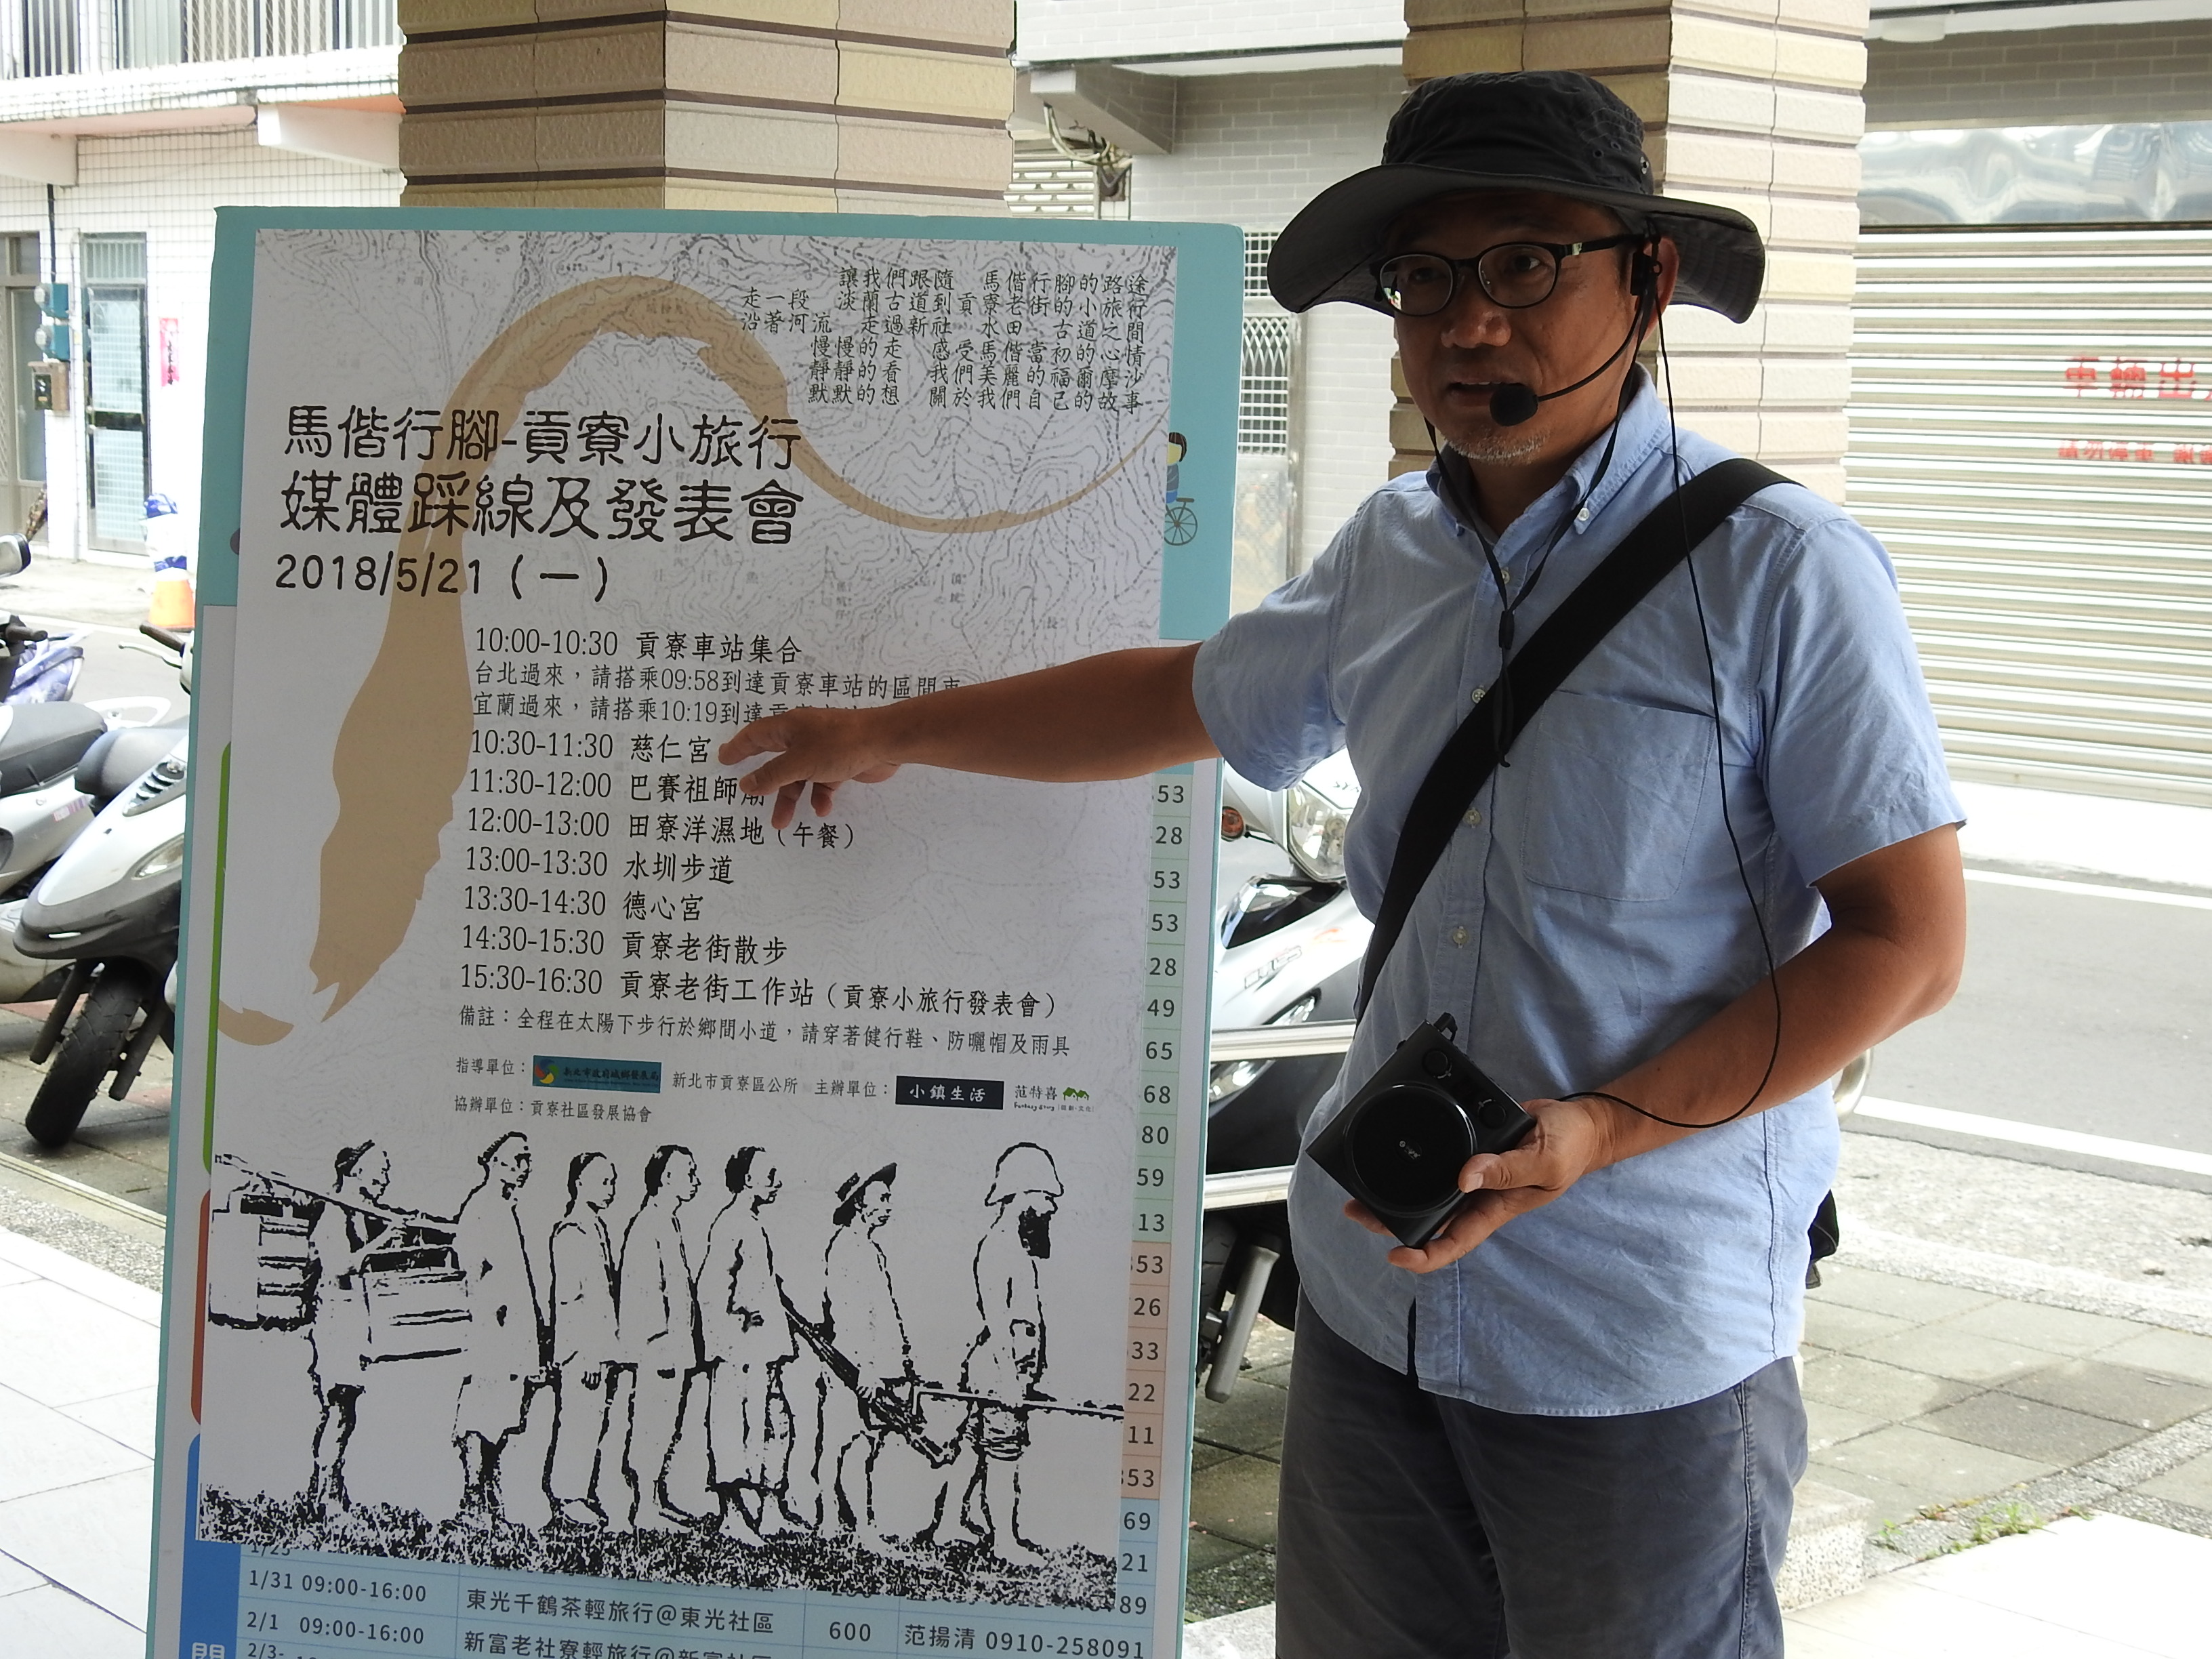 讓我們跟隨 馬偕行腳的路途
走一段淡蘭古道到貢寮老街的小旅行
沿著河流走過新社水田古道之間
慢慢的走 感受馬偕當初的心情
靜靜的看 我們美麗的福爾摩沙
默默的想 關於我們自己的故事
馬偕行腳-貢寮小旅行
媒體踩線及發表會
2018/5/21（一）
10:00-10:30 貢寮車站集合
台北過來，請搭乘09:58到達貢寮車站的區間車
宜蘭過來，請搭乘10:19到達貢寮
10:30-11:30 慈仁宮
11:30-12:00 巴賽祖師廟
12:00-13:00 田寮洋濕地（午餐）
13:00-13:30 水圳步道
13:30-14:30 德心宮
14:30-15:30 貢寮老街散步
15:30-16:30 貢寮老街工作站（貢寮小旅行發表會）
備註：全程在太陽下步行於鄉間小道，請穿著健行鞋、防曬帽及雨具
指導單位： 新北市政府城鄉發展局 新北市貢寮區公所 主辦單位： 小鎮生活 范特喜
協辦單位：貢寮社區發展協會
53
28
53
53
28
49
65
68
80
59
13
353
26
33
22
11
353
69
21
89
1/31 09:00-16:00 東光千鶴茶輕旅行@東光社區
2/1 09:00-16:00 新富老社寮輕旅行@新富社區 600 范揚清 0910-258091
2/3-
車輛出
請勿停車